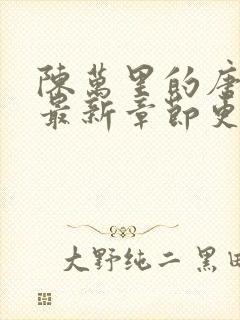 陳萬里的唐
最新章節更
大野純二 黑田